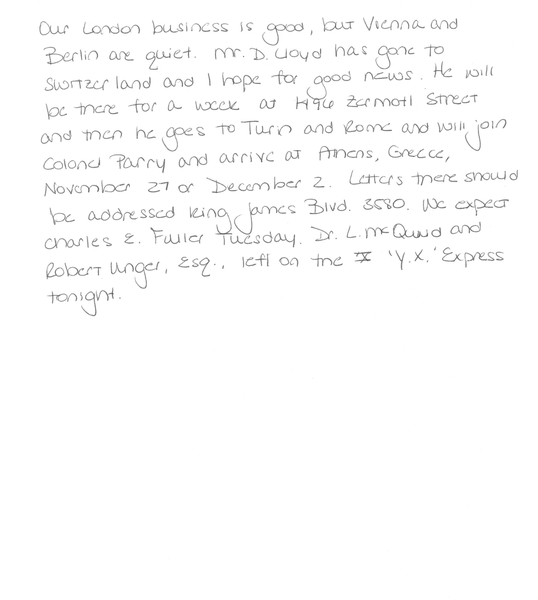 Our London business is good, but Vienna and
Berlin are quiet. Mr. D. Lloyd has gone to
Switzerland and I hope for good news. He will
be there for a week at 1496 Zermott Street
and then he goes to Turin and Rome and will join
Colonel Parry and arrive at Athens, Greece,
November 27 or December 2. Letters there should
be addressed King James Blvd. 3580. We expect
Charles E. Fuller Tuesday. Dr. L. McQuaid and
Robert Unger, Esq., left on the X 'Y.X.' Express
tonight.